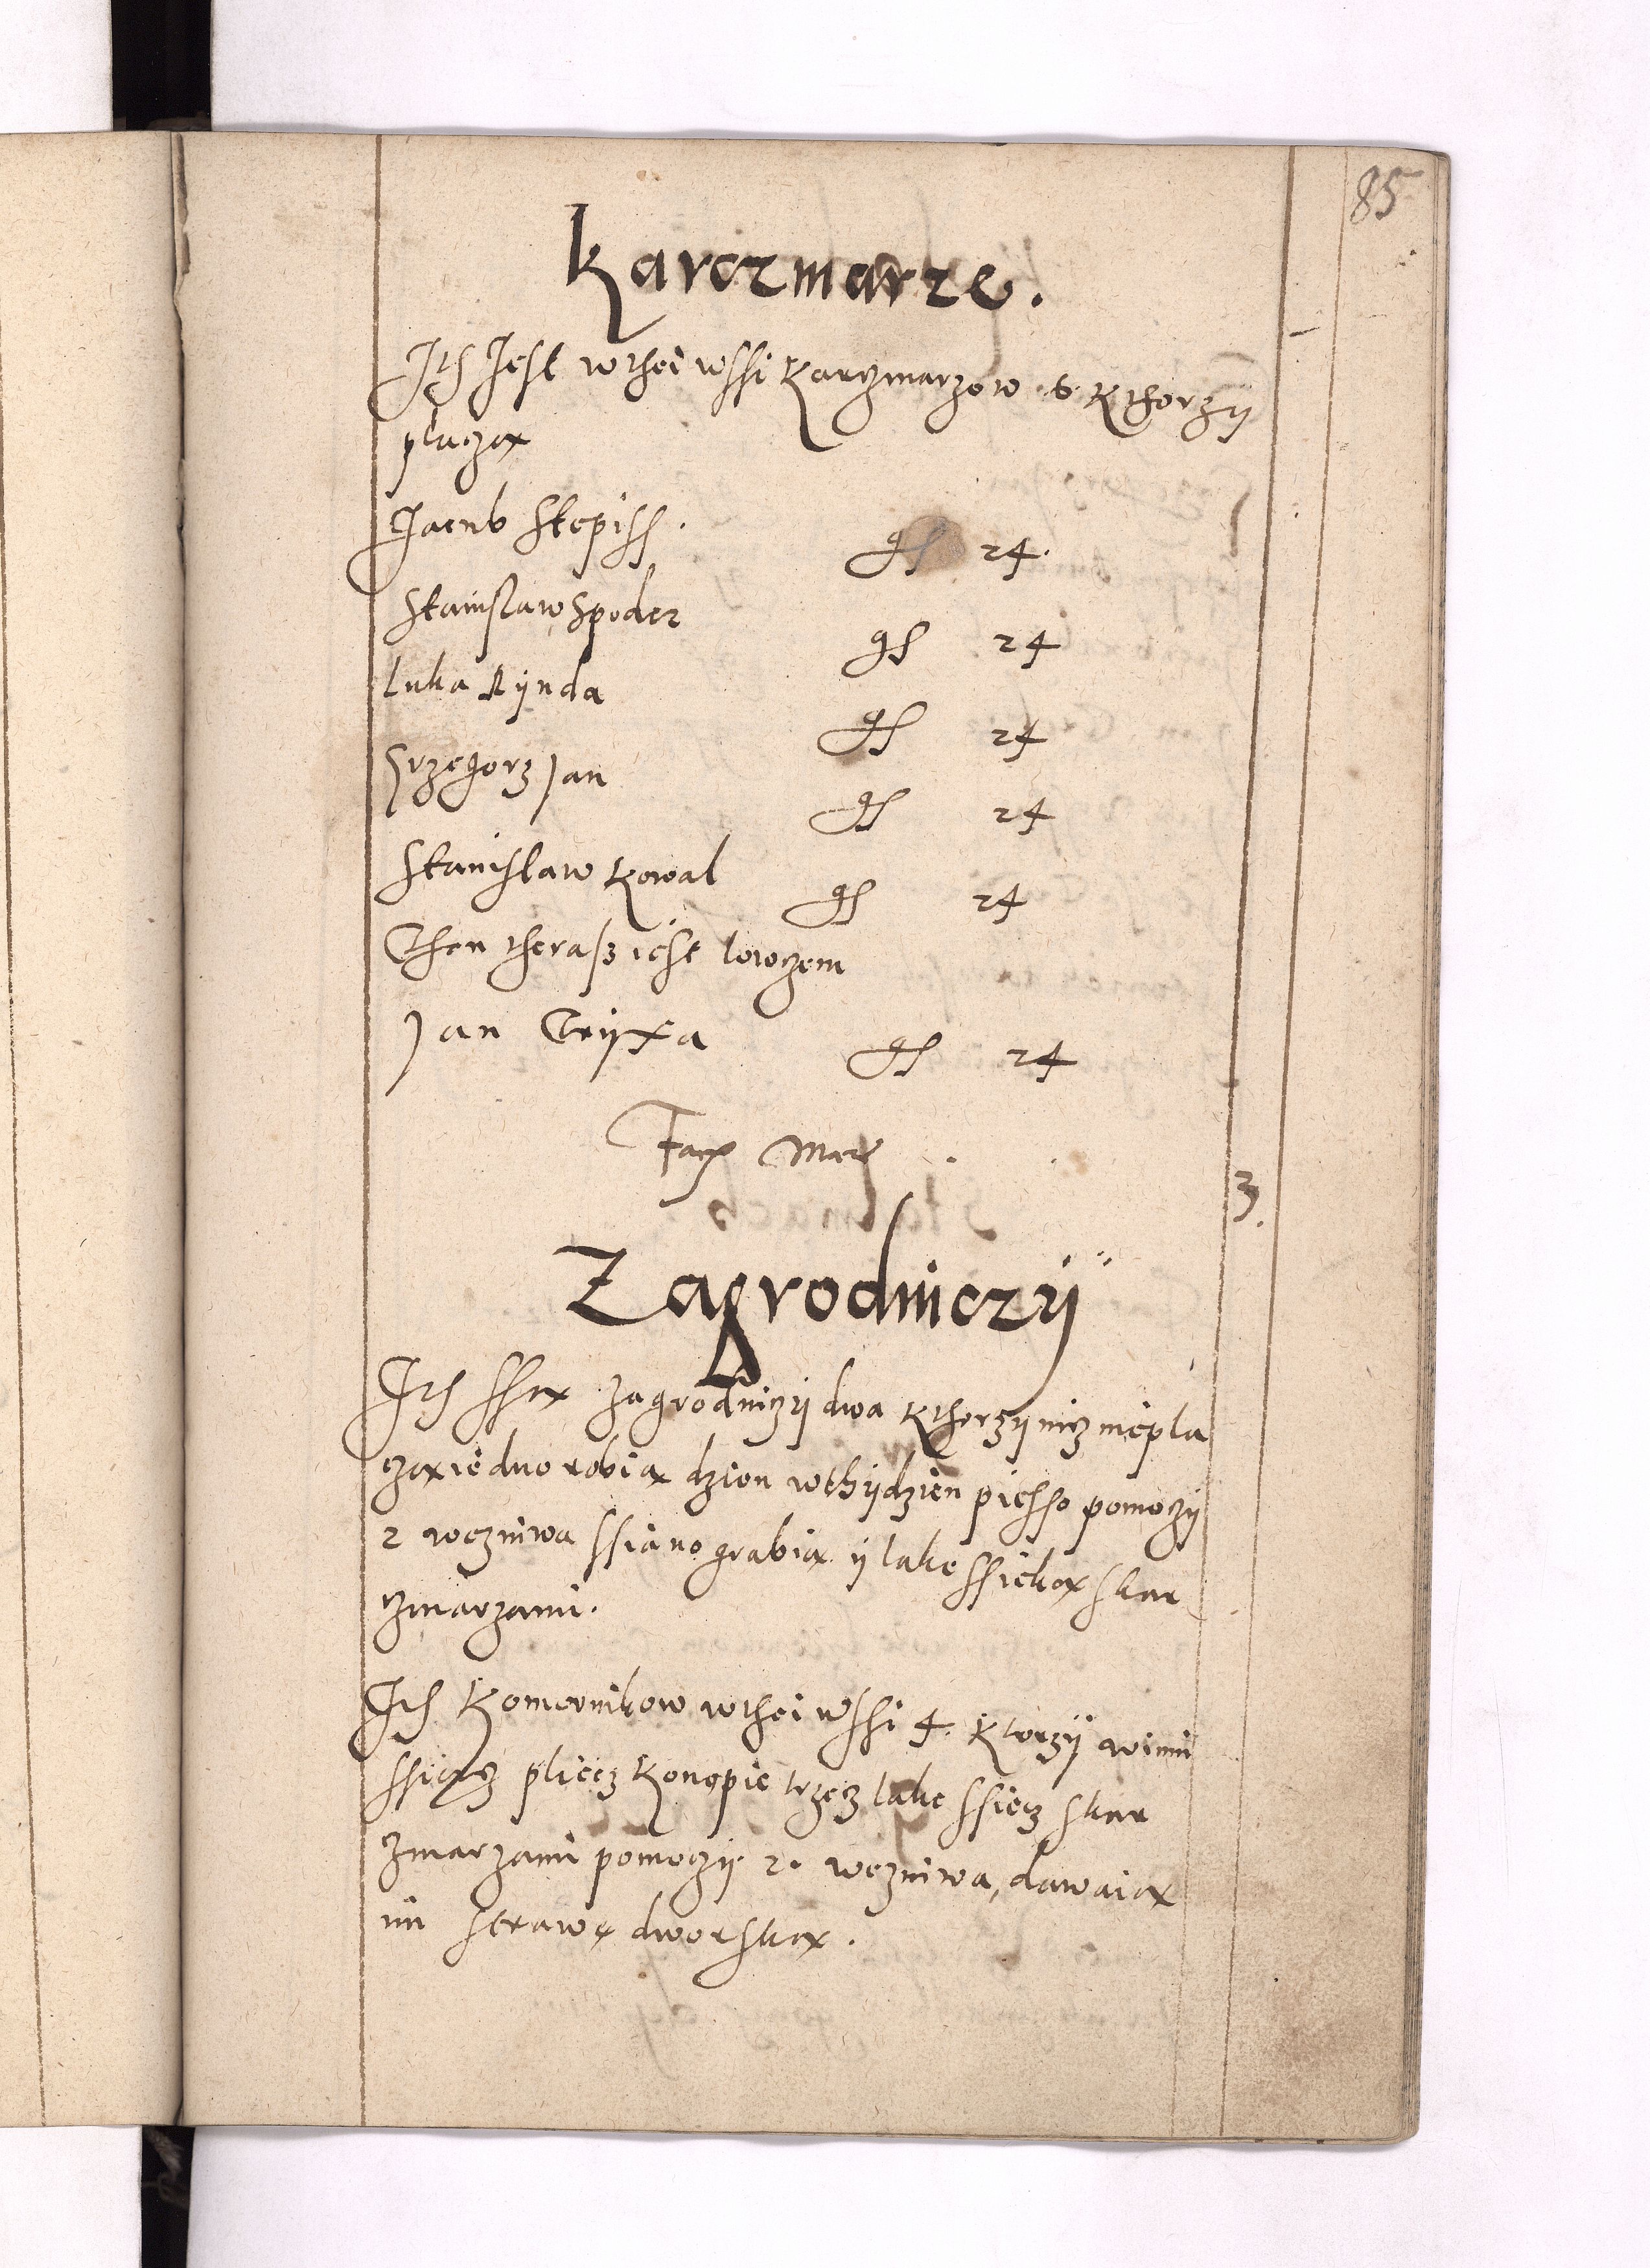 85
Karczmarze.
Jtem Jest wthei wssi Karczmarzow 6 Kthorzy
placzax
Jacub Stepiss. gs 24.
Stanislaw Spodez gs 24
Luka Rynda gs 24
Grzegorz Jan gs 24
Stanislaw Kowal gs 24
Then therasz iest lowczem
Jan Gryxa gs 24
Facit Mar. 3.
Zagrodniczÿ
Jtem ssax zagrodniczy dwa Kthorzy nicz niepla
czax iedno robiax dzien wthydzien piesso pomoczy
2 weczniwa ssiano grabiax y lake ssiekax skar
czmarzami.
Jtem Komornikow wthei wssi 4. Ktorzy winni
pliecz Konopie trzecz lake ssiecz skar
czmarzami pomoczy 2. wezniwa, dawaiax
im strawę dworskax.